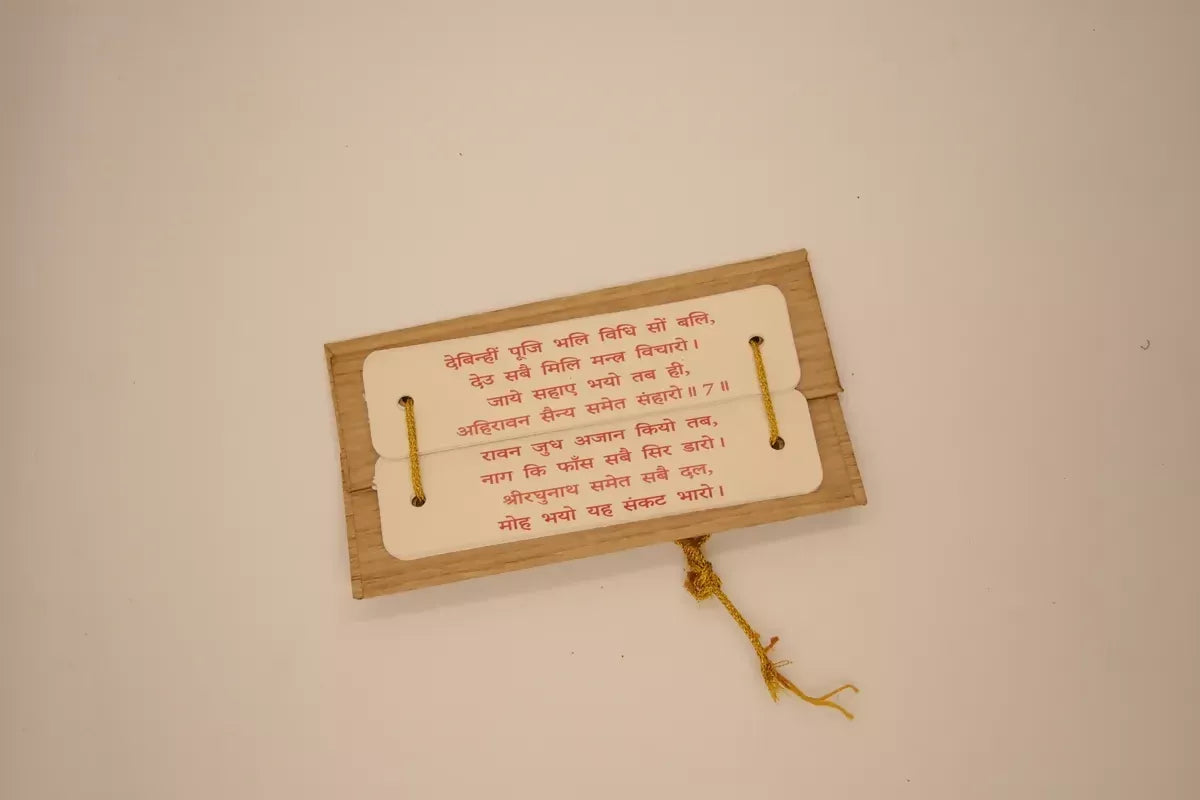 देबिन्हीं पूजि भलि विधि सों बलि,
देउ सबै मिलि मन्त्र विचारो।
जाये सहाए भयो तब ही,
अहिरावन सैन्य समेत संहारो॥ 7 ॥
रावन जुध अजान कियो तब,
नाग कि फाँस सबै सिर डारो।
श्रीरघुनाथ समेत सबै दल,
मोह भयो यह संकट भारो।